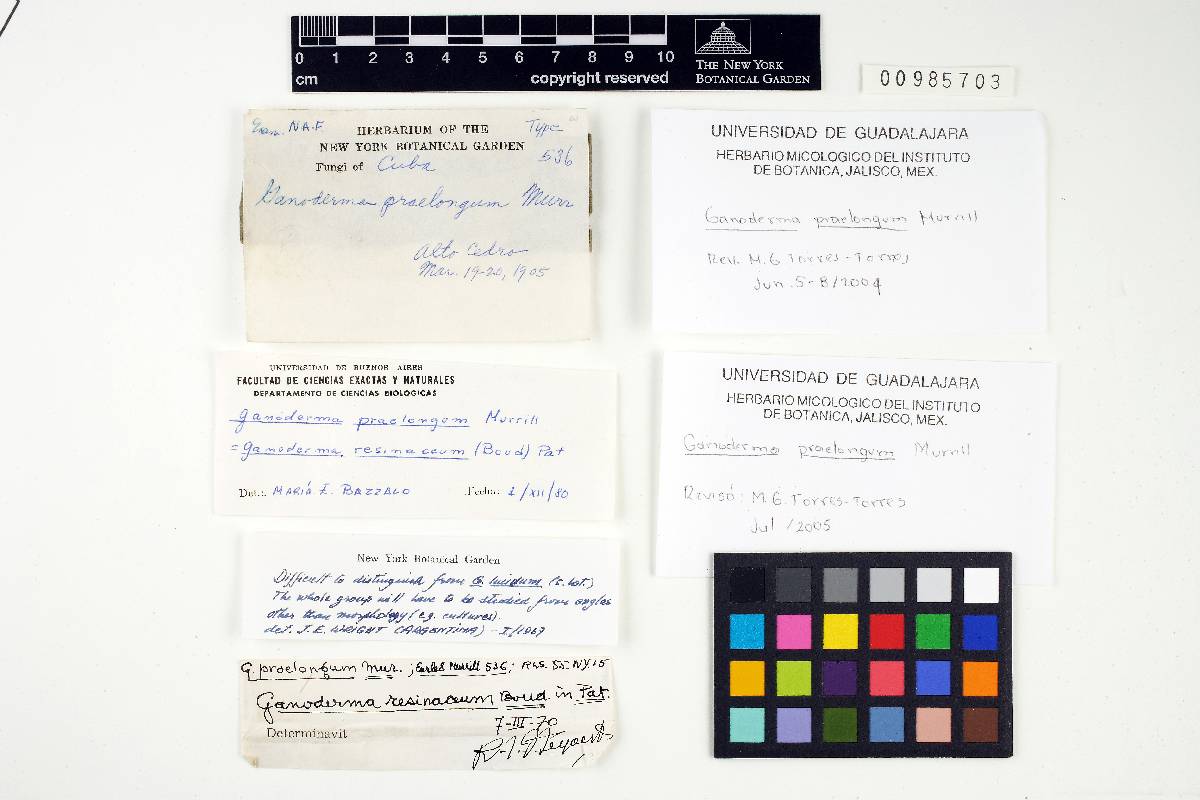 0 1 2 3 4 5 6 7 8 9 10
cm
copyright reserved
THE NEW YORK
BOTANICAL GARDEN
00985703
Exam. N.A.F.
Type
HERBARIUM OF THE
NEW YORK BOTANICAL GARDEN
536
Fungi of Cuba
Ganoderma praelongum Murr
Alto Cedro
Mar. 19-20, 1905
UNIVERSIDAD DE GUADALAJARA
HERBARIO MICOLOGICO DEL INSTITUTO
DE BOTANICA, JALISCO, MEX.
Ganoderma praelongum Murrill
Rev. M. G. Torres-Torres
Jun. 5-8/2004
UNIVERSIDAD DE BUENOS AIRES
FACULTAD DE CIENCIAS EXACTAS Y NATURALES
DEPARTAMENTO DE CIENCIAS BIOLOGICAS
Ganoderma praelongum Murrill
= Ganoderma resinaceum (Boud) Pat
Det.: MARÍA E. BAZZALO
Fecha: 1/XII/80
UNIVERSIDAD DE GUADALAJARA
HERBARIO MICOLOGICO DEL INSTITUTO
DE BOTANICA, JALISCO, MEX.
Ganoderma praelongum Murrill
Revisó: M. G. Torres-Torres
Jul /2005
New York Botanical Garden
Difficult to distinguish from G. lucidum (s. lat.)
The whole group will have to be studied from angles
other than morphology (e.g. cultures).
det. J. E. WRIGHT (ARGENTINA) - I/1967
G. praelongum Mur. ; Earle & Murrill 536;
Ganoderma resinaceum Boud. in Pat.
7-III-70
Determinavit